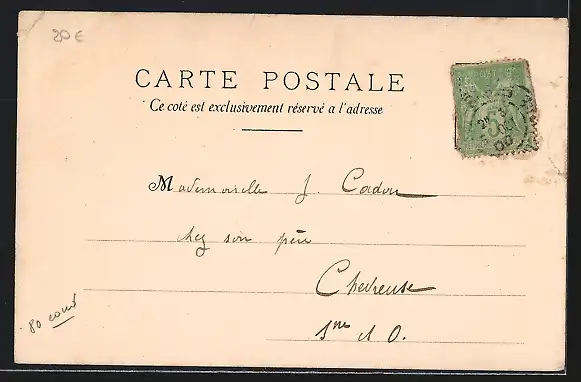 20€
CARTE POSTALE
Ce coté est exclusivement réservé a l'adresse
Mademoiselle J. Cadou
chez son père
Chevreuse
Sne et O.
80 cour